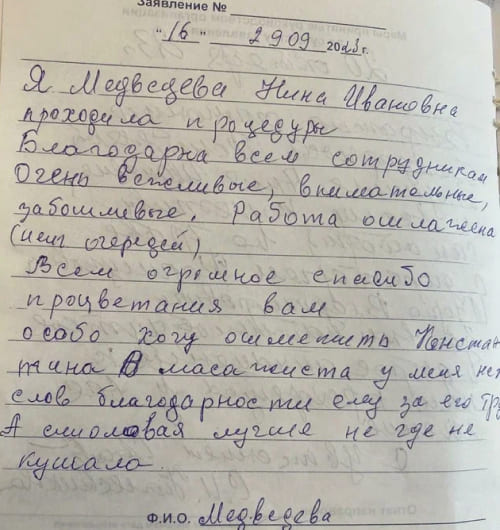 Заявление №
"16" 2909 2023г.
Я Медведева Нина Ивановна
проходила процедуры
Благодарна всем сотрудникам
Очень вежливые, внимательные,
заботливые. Работа отлажена
(нет очередей)
Всем огромное спасибо
процветания вам
особо хочу отметить Констан
тина масажиста у меня нет
слов благодарности ему за его тру
А столовая лучше не где не
кушала.
Ф.И.О. Медведева